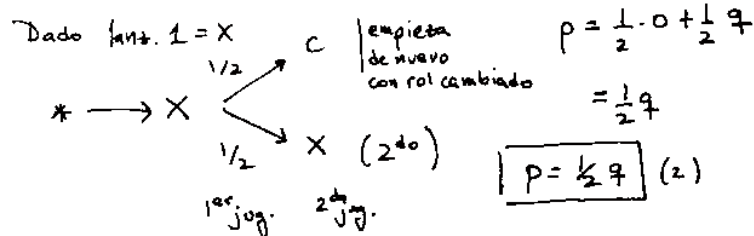 Dado lanz. 1 = X
1/2 C | empieza
de nuevo
con rol cambiado
* → X
1/2 X (2do)
1er jug. 2do jug.
p = 1/2 · 0 + 1/2 q
= 1/2 q
p = 1/2 q (2)